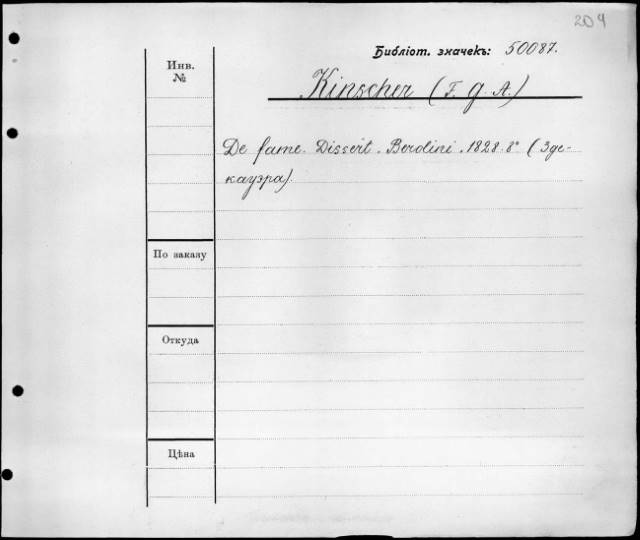 204
Библiот. значекъ: 50087.
Инв.
№
Kinscher (F. G. A.)
De fame. Dissert. Berolini. 1828. 8° (Зде-
кауэра).
По заказу
Откуда
Цѣна